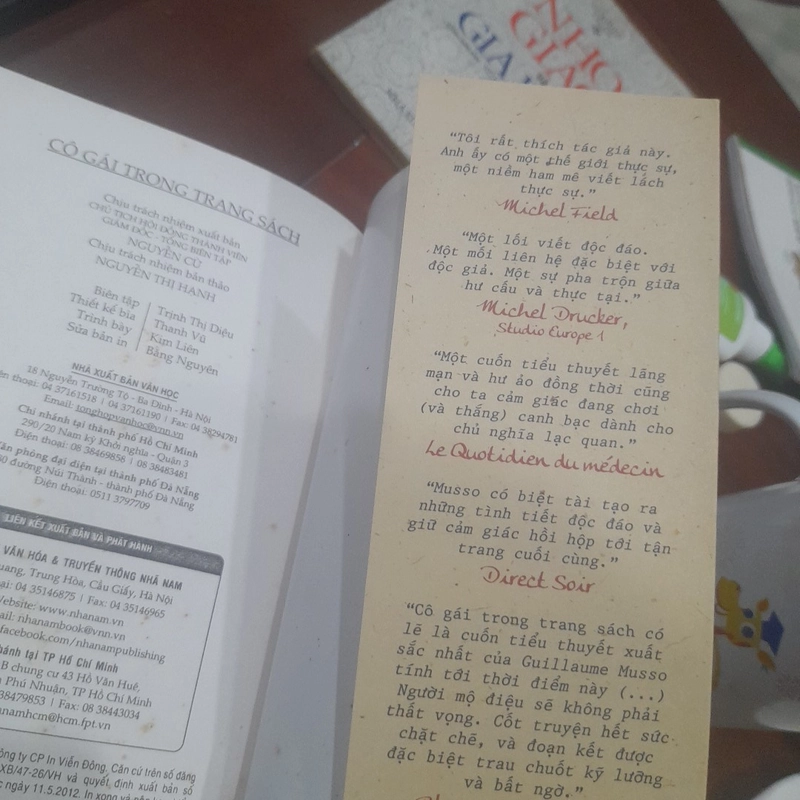 CÔ GÁI TRONG TRANG SÁCH
Chịu trách nhiệm xuất bản
CHỦ TỊCH HỘI ĐỒNG THÀNH VIÊN
GIÁM ĐỐC - TỔNG BIÊN TẬP
NGUYỄN CỪ
Chịu trách nhiệm bản thảo
NGUYỄN THỊ HẠNH
Biên tập Trịnh Thị Diệu
Thiết kế bìa Thanh Vũ
Trình bày Kim Liên
Sửa bản in Bằng Nguyên
NHÀ XUẤT BẢN VĂN HỌC
18 Nguyễn Trường Tộ - Ba Đình - Hà Nội
thoại: 04 37161518 | 04 37161190 | Fax: 04 38294781
Email: tonghopvanhoc@vnn.vn
Chi nhánh tại thành phố Hồ Chí Minh
290/20 Nam kỳ Khởi nghĩa - Quận 3
Điện thoại: 08 38469858 | 08 38483481
phòng đại diện tại thành phố Đà Nẵng
đường Núi Thành - thành phố Đà Nẵng
Điện thoại: 0511 3797709
LIÊN KẾT XUẤT BẢN VÀ PHÁT HÀNH
VĂN HÓA & TRUYỀN THÔNG NHÃ NAM
Trung Hòa, Cầu Giấy, Hà Nội
04 35146875 | Fax: 04 35146965
www.nhanam.vn
nhanambook@vnn.vn
facebook.com/nhanampublishing
tại TP Hồ Chí Minh
B chung cư 43 Hồ Văn Huê,
Phú Nhuận, TP Hồ Chí Minh
38479853 | Fax: 08 38443034
hcm.fpt.vn
ty CP In Viễn Đông. Căn cứ trên số đăng
XB/47-26/VH và quyết định xuất bản số
ngày 11.5.2012. In xong và
“Tôi rất thích tác giả này.
Anh ấy có một thế giới thực sự,
một niềm ham mê viết lách
thực sự.”
Michel Field
“Một lối viết độc đáo.
Một mối liên hệ đặc biệt với
độc giả. Một sự pha trộn giữa
hư cấu và thực tại.”
Michel Drucker,
Studio Europe 1
“Một cuốn tiểu thuyết lãng
mạn và hư ảo đồng thời cũng
cho ta cảm giác đang chơi
(và thắng) canh bạc dành cho
chủ nghĩa lạc quan.”
Le Quotidien du médecin
“Musso có biệt tài tạo ra
những tình tiết độc đáo và
giữ cảm giác hồi hộp tới tận
trang cuối cùng.”
Direct Soir
“Cô gái trong trang sách có
lẽ là cuốn tiểu thuyết xuất
sắc nhất của Guillaume Musso
tính tới thời điểm này (...)
Người mộ điệu sẽ không phải
thất vọng. Cốt truyện hết sức
chặt chẽ, và đoạn kết được
đặc biệt trau chuốt kỹ lưỡng
và bất ngờ.”